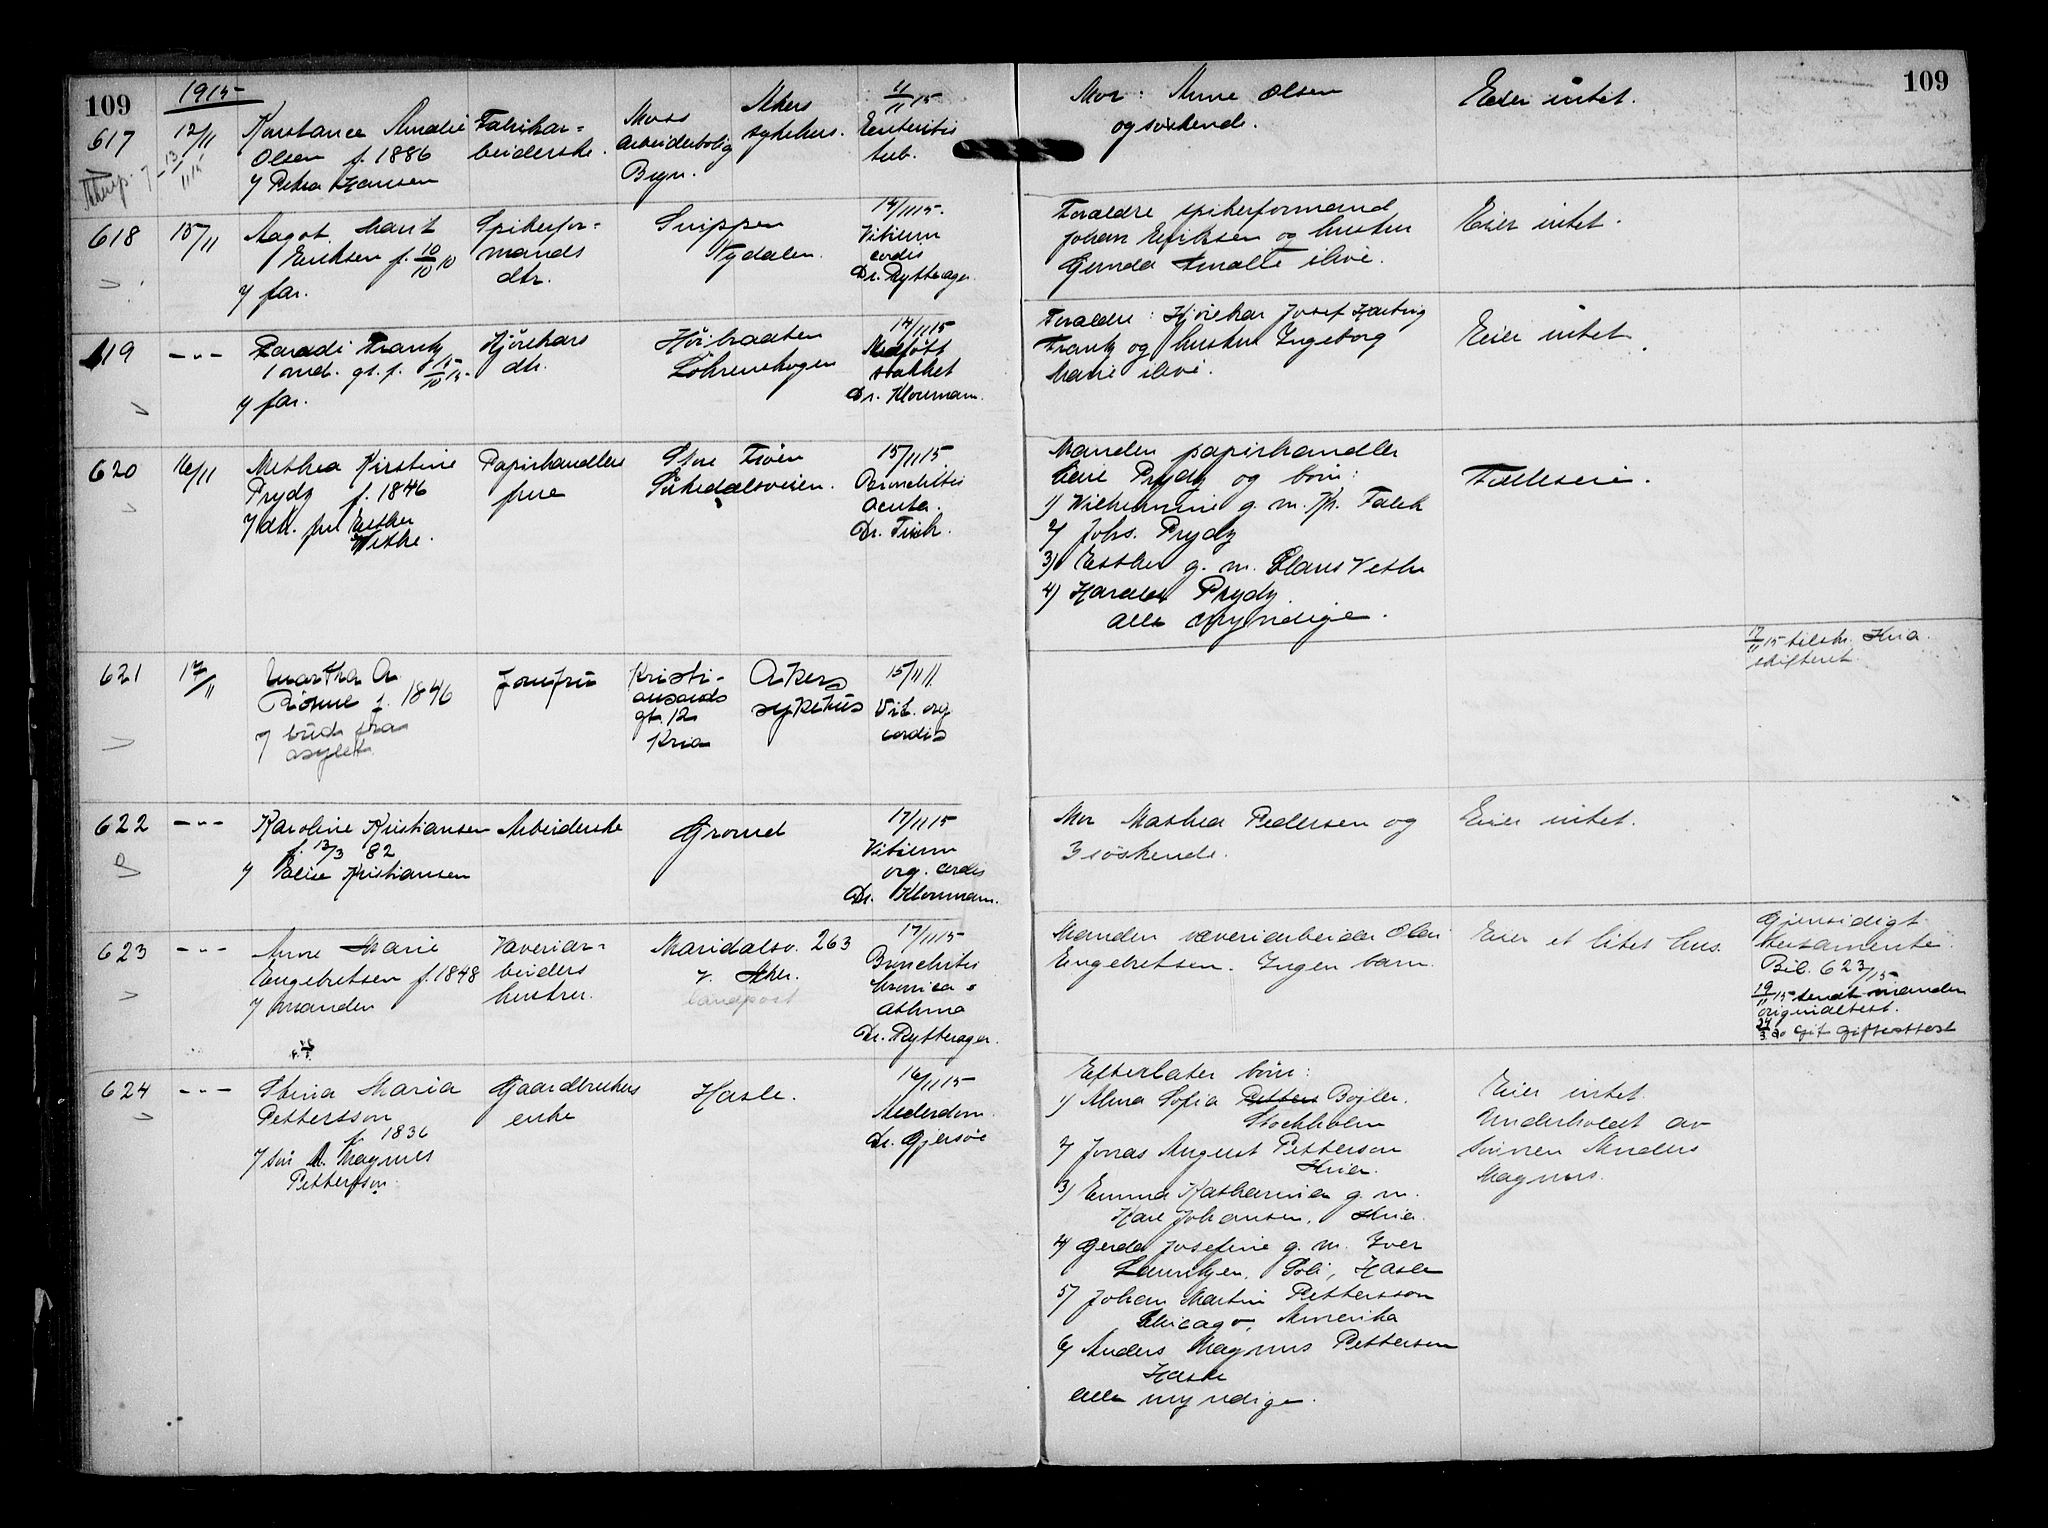 109
1915
617
12/11
Konstance Amalie
Olsen f. 1886
7 Petra Hansen
Fabrikar-
beiderske.
Moss
Arbeiderbolig
Bryn.
Akers
sykehus.
11/11 15
Enteritis
tub.
Mor: Anne Olsen
og søskende.
Eier intet.
109
618
15/11
Aagot Marit
Eriksen f. 10/10 10
7 far.
Spikerfor-
mands
dtr.
Snippen
Nydalen.
14/11 15.
Vitium
cordis
Dr. Rytterager
Foreldre spikerformand
Johan Eriksen og hustru
Gunda Amalie ilive.
Eier intet.
619
-"-
Frantz
1 md. gl. f. 15/10 15
7 far.
Kjørekars
dtr.
Høibraaten
Løhrenskogen
14/11 15
Medføtt
svakhet
Dr. Klouman.
Foreldre: Kjørekar Josef Hartvig
Frantz og hustru Ingeborg
Marie ilive.
Eier intet.
620
16/11
Methea Kirstine
Prydz f. 1846
7 dtr. fru Esther
Vethe.
Papirhandlers
frue
Store Frøen
Sørkedalsveien.
15/11 15
Bronchitis
acuta.
Dr. Finch.
Manden papirhandler
Prydz og børn:
1) Vilhelmine g. m. Kr. Falch
2) Johs. Prydz
3) Esther g. m. Claus Vethe
4) Harald Prydz.
alle myndige.
Fælleseie.
621
17/11
Martha A
f. 1846
7 bud fra
asylet.
Jomfru
Kristi-
ansands
gt. 12
Kria
Akers
sykehus
15/11 11
Vit. org
cordis
17/11 15 tilskr. Kria
skifteret.
622
-"-
Karoline Kristiansen
f. 13/3 82
7 Elise Kristiansen
Arbeiderske
Grorud
17/11 15
Vitium
org. cordis
Dr. Klouman.
Mor Mathea Pedersen og
3 søskende.
Eier intet.
623
-"-
Anne Marie
Engebretsen f. 1848
7 manden
Væveriar-
beiders
hustru.
Maridalsv. 263
V. Aker.
landpost
17/11 15
Bronchitis
kronica &
asthma
Dr. Rytterager.
Manden væveriarbeider Olai
Engebretsen. Ingen barn.
Eier et litet hus.
Gjensidigt
testamente.
Bil. 623/15
19/11 15 sendt manden
originaltest.
24/3 20 git gifteattest
624
-"-
Stina Maria
Pettersson
f. 1836
7 søn A. Magnus
Pettersson.
Gaardbrukers
enke
Hasle.
16/11 15
Alderdom.
Dr. Gjersøe
Efterlater børn:
1) Alma Sofia Petters Bojler.
Stockholm
2) Jonas August Petterson
Kria.
3) Emma Katharina g. m.
Karl Johansen, Kria.
4) Gerda Josefine g. m. Iver
Hasle
5) Johan Martin Pettersson
Chicago, Amerika
6) Anders Magnus Petterson
Hasle
alle myndige.
Eier intet.
Underholdt av
sønnen Anders
Magnus.